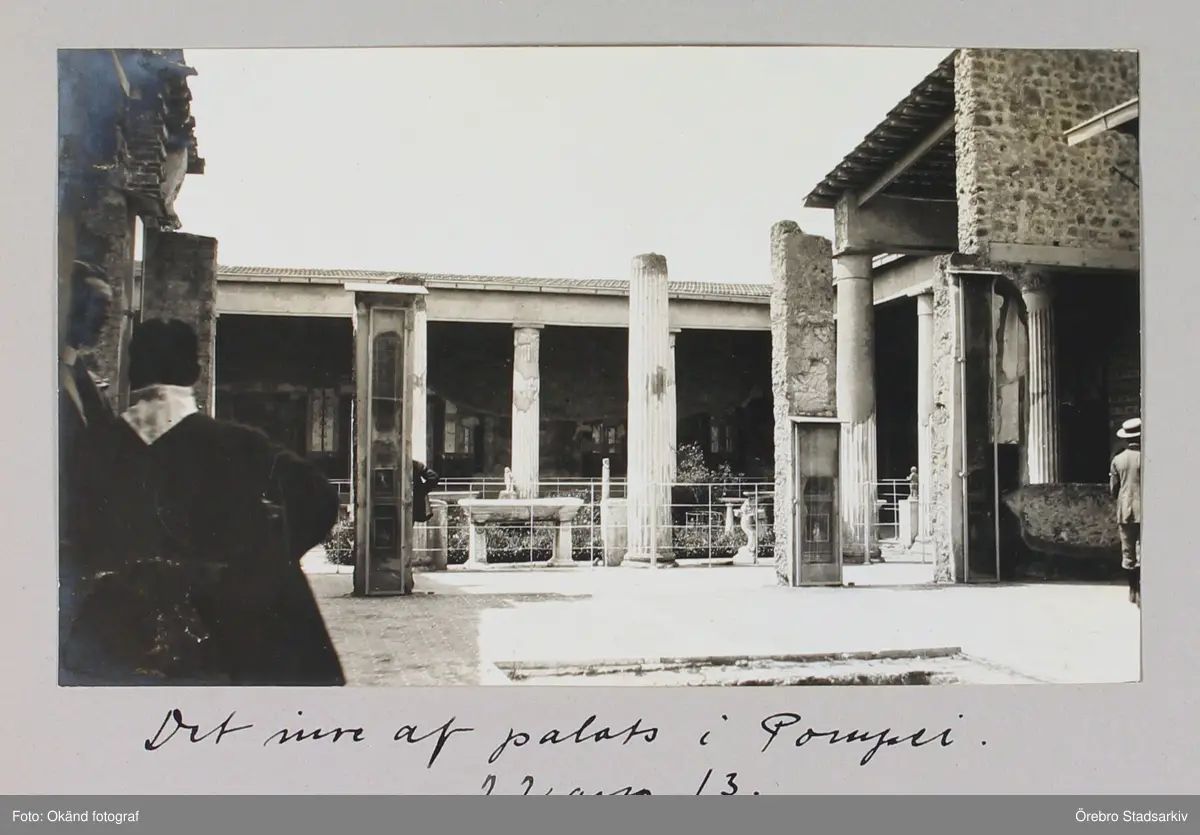 Det inre af palats i Pompei.
13.
Foto: Okänd fotograf
Örebro Stadsarkiv